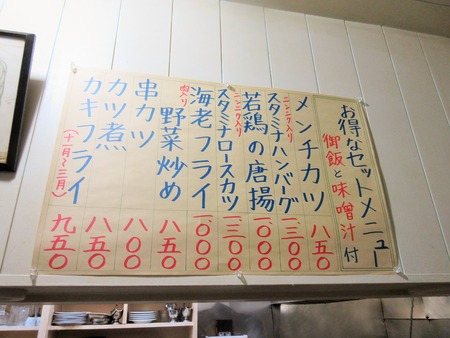 お得なセットメニュー
御飯と味噌汁付
メンチカツ 八五〇
ニンニク入り
スタミナハンバーグ 一、三〇〇
若鶏の唐揚 一、〇〇〇
ニンニク入り
スタミナロースカツ 一、三〇〇
海老フライ 一、〇〇〇
肉入り
野菜炒め 八五〇
串カツ 八〇〇
カツ煮 八五〇
カキフライ(十一月〜三月) 九五〇